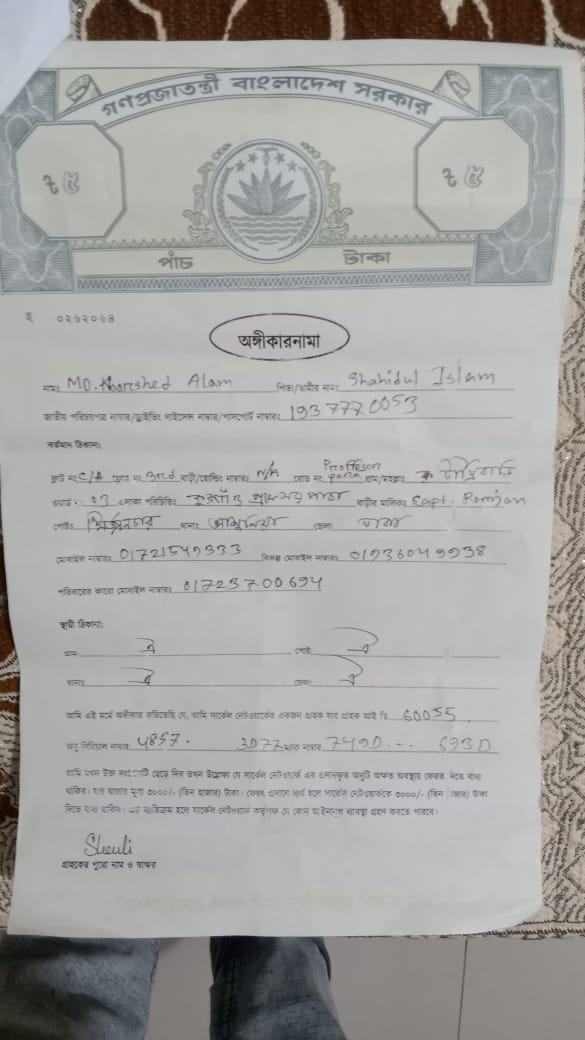 গণপ্রজাতন্ত্রী বাংলাদেশ সরকার
৳ ৫ ৳ ৫
পাঁচ টাকা
০২৬২০৬৪
অঙ্গীকারনামা
নামঃ MD. Khorshed Alam পিতা/স্বামীর নামঃ Shahidul Islam
জাতীয় পরিচয়পত্র নাম্বার/ড্রাইভিং লাইসেন্স নাম্বার/পাসপোর্ট নাম্বারঃ 1937770053
বর্তমান ঠিকানা:
ফ্ল্যাট নং C/A ফ্লোর নং 3rd বাড়ী/হোল্ডিং নাম্বারঃ N/A রোড নং Proffesor para গ্রাম/মহল্লাঃ
ওয়ার্ড : 03 এলাকা পরিচিতিঃ বাড়ীর মালিকঃ Capt. Romjan
পোষ্টঃ থানাঃ জেলাঃ ঢাকা
মোবাইল নাম্বারঃ 01721549333 বিকল্প মোবাইল নাম্বারঃ 01936049938
পরিবারের কারো মোবাইল নাম্বারঃ 01723700694
স্থায়ী ঠিকানা:
গ্রামঃ ঐ পোষ্টঃ ঐ
থানাঃ ঐ জেলাঃ ঐ
আমি এই মর্মে অঙ্গীকার করিতেছি যে, আমি সার্কেল নেটওয়ার্কের একজন গ্রাহক যার গ্রাহক আই ডি 60055.
অনু সিরিয়াল নাম্বার 4857. . . 3077 ম্যাক নাম্বার 7490... 6930
আমি যখন উক্ত ছেড়ে দিব তখন উল্লেখ্য যে সার্কেল নেটওয়ার্ক এর প্রদানকৃত অনুটি অক্ষত অবস্থায় ফেরত দিতে বাধ্য
থাকিব। যার বাজার মূল্য ৩০০০/- (তিন হাজার) টাকা। ফেরৎ প্রদানে ব্যর্থ হলে সার্কেল নেটওয়ার্ককে ৩০০০/- (তিন হাজার) টাকা
দিতে বাধ্য থাকিব। এর ব্যতিক্রম হলে সার্কেল নেটওয়ার্ক কর্তৃপক্ষ যে কোন আইনানুগ ব্যবস্থা গ্রহণ করতে পারবে।
Sheuli
গ্রাহকের পুরো নাম ও স্বাক্ষর